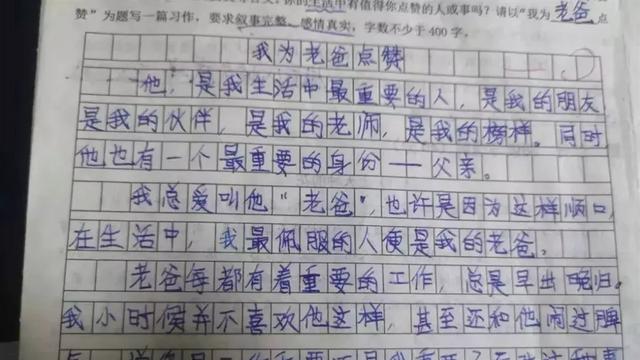 你的生活中有值得你点赞的人或事吗？请以“我为老爸点
赞”为题写一篇习作，要求叙事完整，感情真实，字数不少于400字。
我为老爸点赞
他，是我生活中最重要的人，是我的朋友
是我的伙伴，是我的老师，是我的榜样。同时
他也有一个最重要的身份——父亲。
我总爱叫他“老爸”，也许是因为这样顺口，
在生活中，我最佩服的人便是我的老爸。
老爸每都有着重要的工作，总是早出晚归。
我小时候并不喜欢他这样，甚至还和他闹过脾